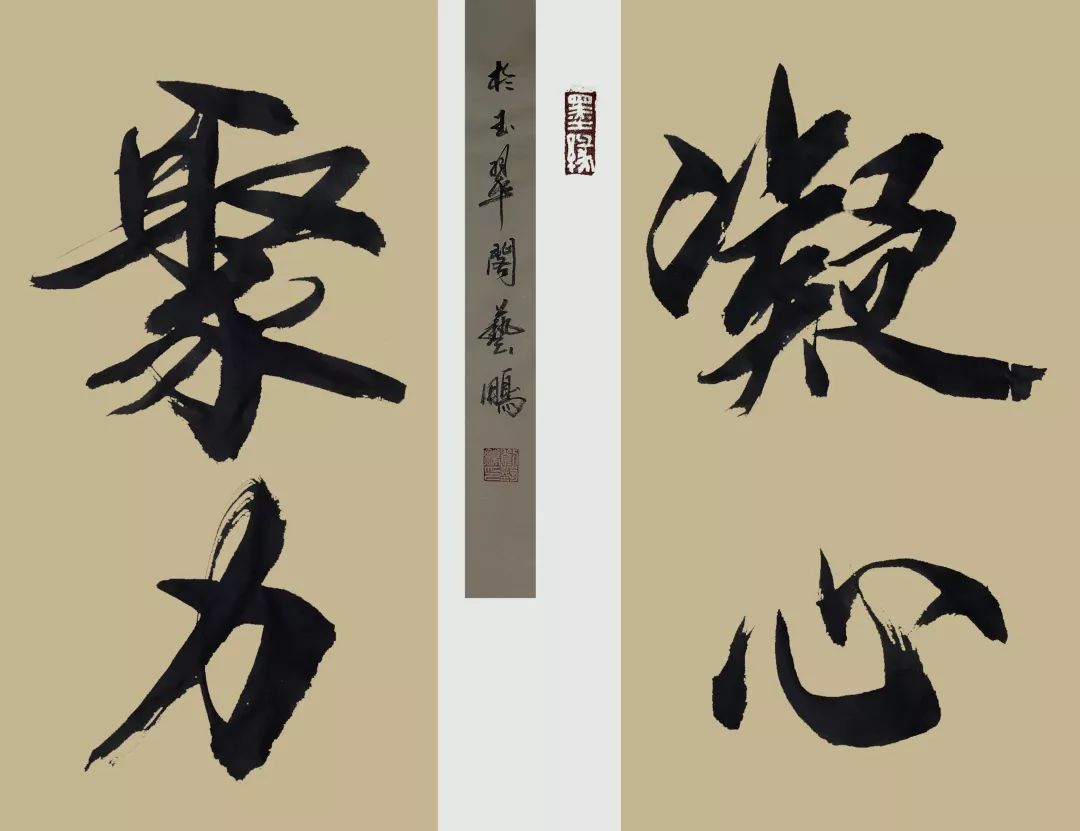 凝心
墨缘
於玉翠閣藝鵬
聚力